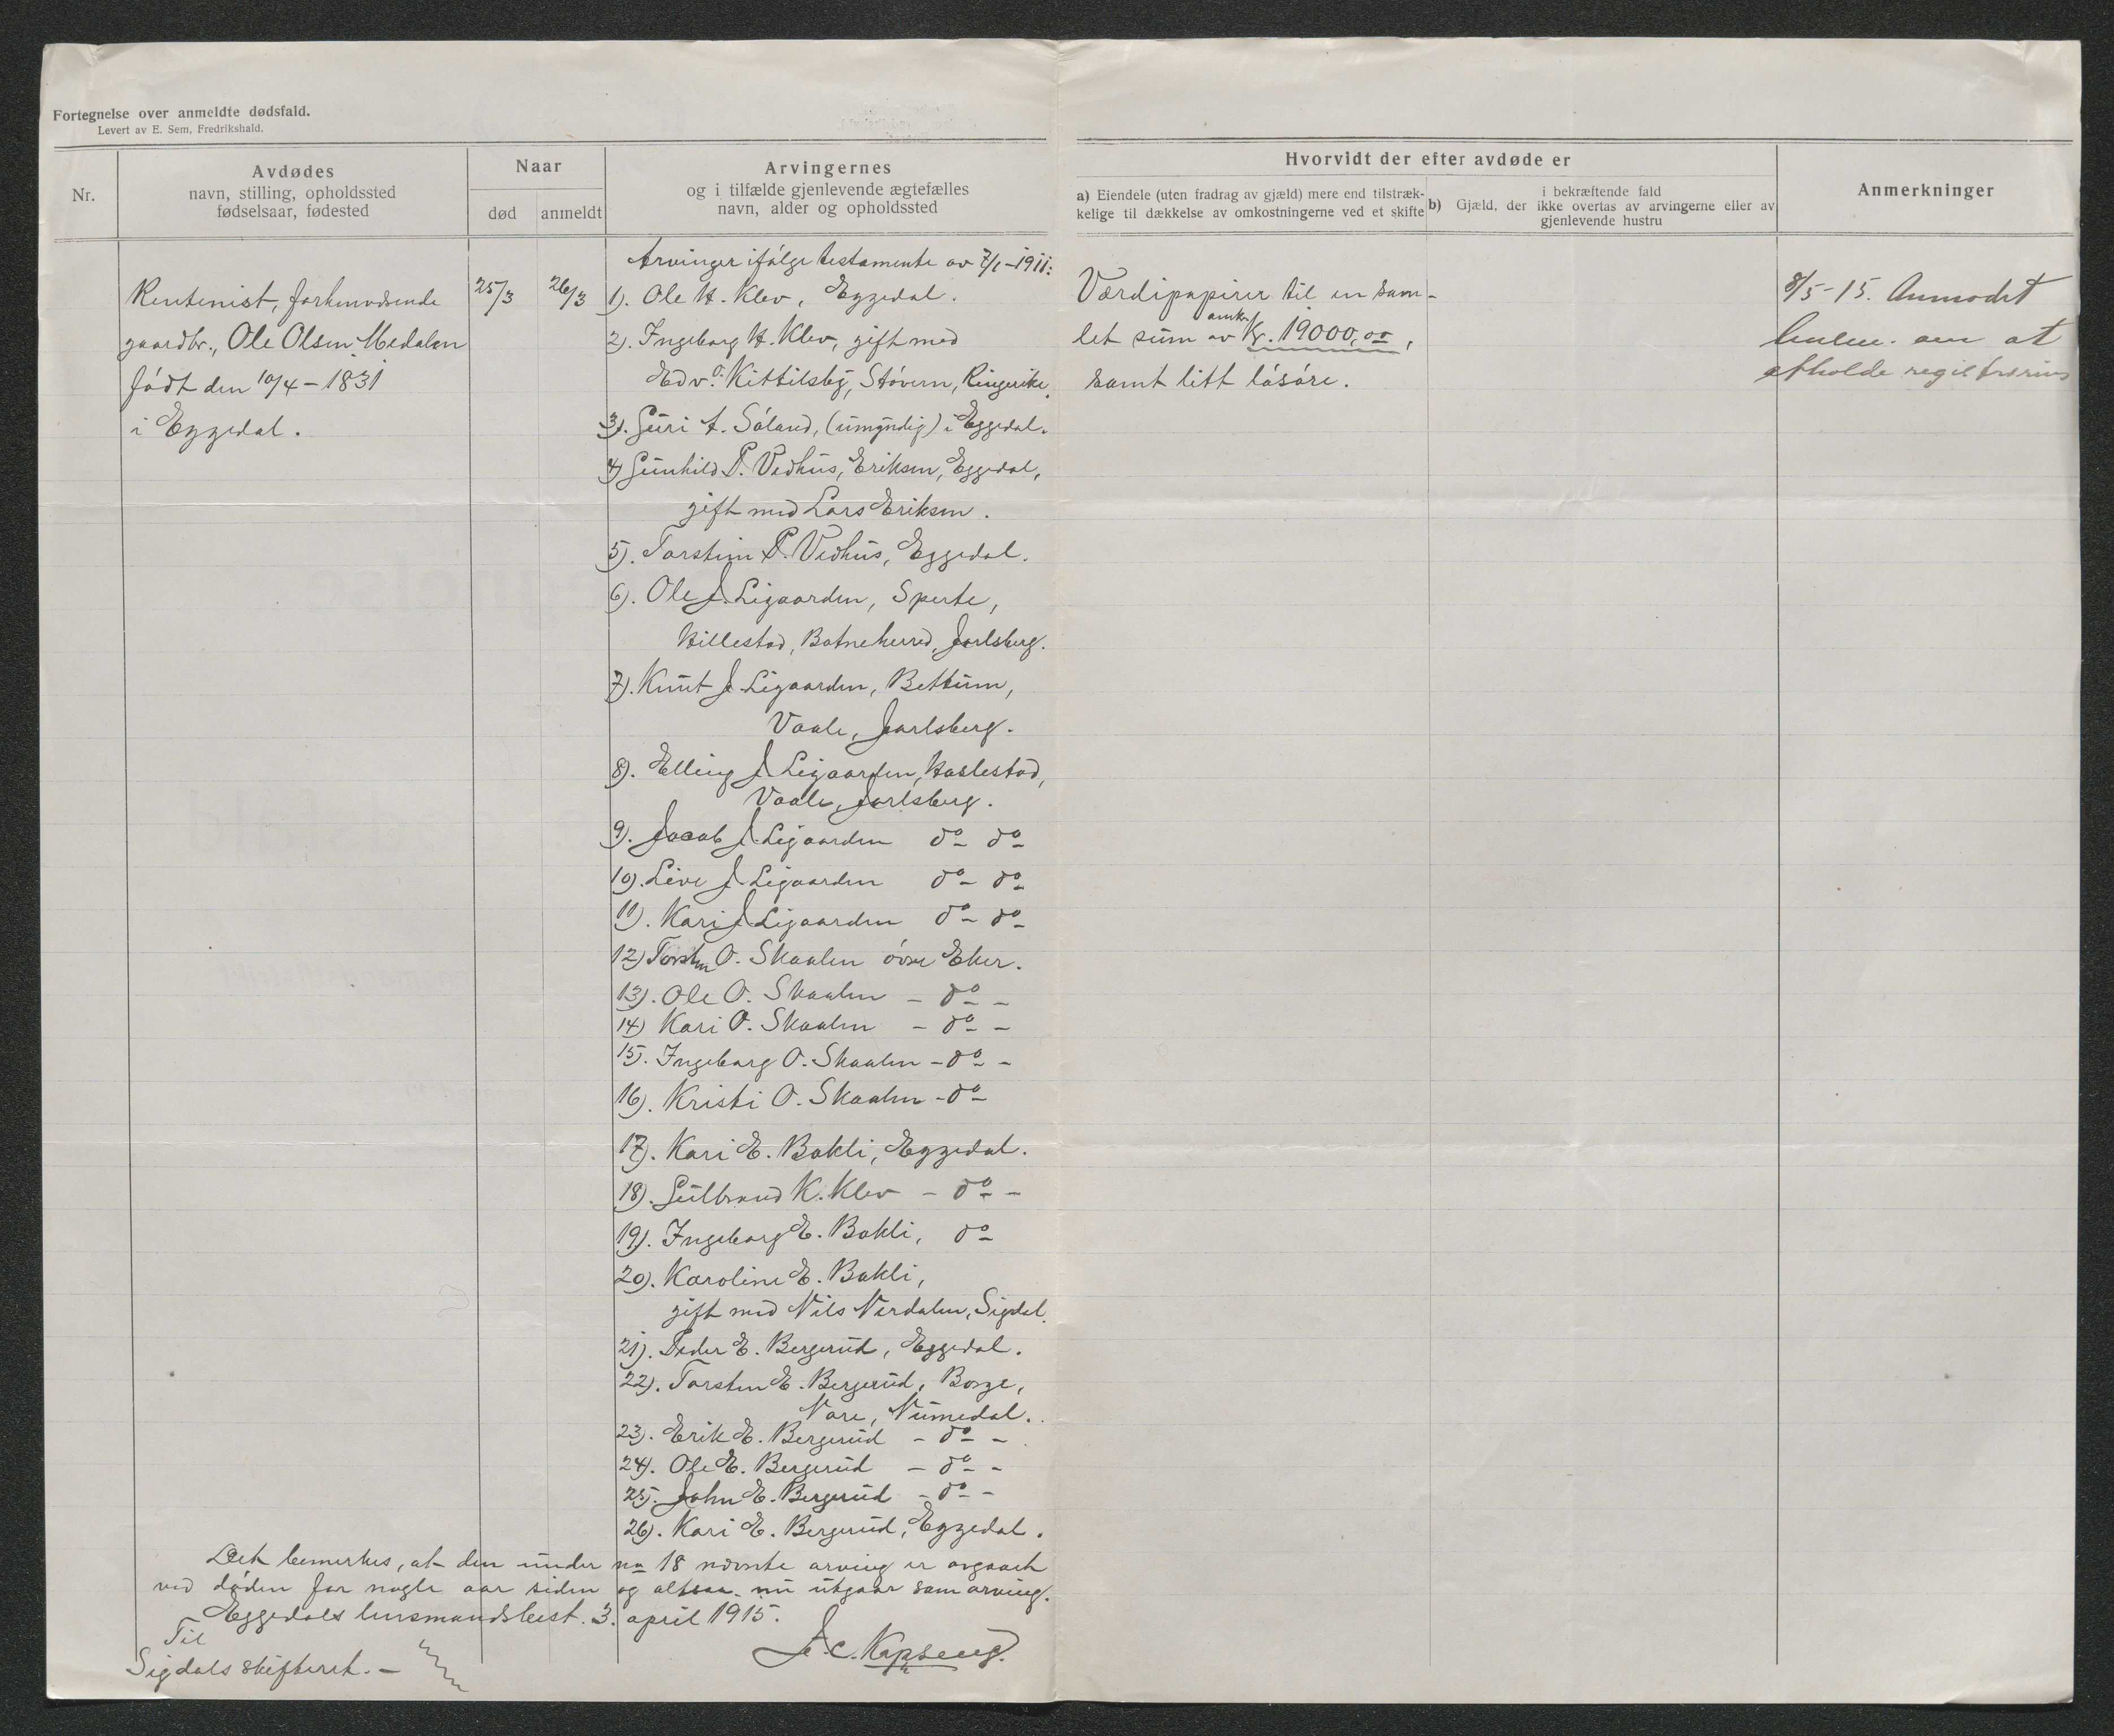 Fortegnelse over anmeldte dødsfald.
Levert av E. Sem, Fredrikshald.
Nr.
Avdødes
navn, stilling, opholdssted
fødselsaar, fødested
Naar
død
anmeldt
Arvingernes
og i tilfælde gjenlevende ægtefælles
navn, alder og opholdssted
Hvorvidt der efter avdøde er
a) Eiendele (uten fradrag av gjæld) mere end tilstræk-
kelige til dækkelse av omkostningerne ved et skifte
i bekræftende fald
b) Gjæld, der ikke overtas av arvingerne eller av
gjenlevende hustru
Anmerkninger
Rentenist, forhenværende
gaardbr., Ole Olsen Medalen
født den 10/4 - 1831
i Eggedal.
25/3
26/3
Arvinger ifølge testamente av 7/1 - 1911:
1). Ole H. Klev, Eggedal.
2). Ingeborg H. Klev, gift med
Edv. O. Kittilsby, Støvern, Ringerike.
3). Guri A. Søland, (umyndig) i Eggedal.
4) Gunhild P. Vedhus, Eriksen, Eggedal,
gift med Lars Eriksen.
5). Torstein P. Vedhus, Eggedal.
6). Ole J. Ligaarden, Sperte,
Hillestad, Botneherred, Jarlsberg.
7). Knut J. Ligaarden, Bettum,
Vaale, Jarlsberg.
8). Elling J. Ligaarden, Haslestad,
Vaale, Jarlsberg.
9). Jacob J. Ligaarden do do
10). Live J. Ligaarden do do
11). Kari J. Ligaarden do do
12) Torsten O. Skaalen øvre Eker.
13). Ole O. Skaalen - do -
14) Kari O. Skaalen - do -
15). Ingeborg O. Skaalen - do -
16). Kristi O. Skaalen - do
17). Kari E. Bakli, Eggedal.
18). Gulbrand K. Klev - do -
19). Ingeborg E. Bakli, do
20). Karoline E. Bakli,
gift med Nils Nerdalen, Sigdal.
21). Peder E. Bergerud, Eggedal.
22). Torsten E. Bergerud, Borge,
Nore, Numedal.
23). Erik E. Bergerud - do -
24). Ole E. Bergerud - do -
25). John E. Bergerud - do -
26). Kari E. Bergerud, Eggedal.
Værdipapirer til en sam-
let sum av omkr. Kr. 19000,00,
samt litt løsøre.
8/5 - 15. Anmodet
lensm. om at
afholde registrering
Det bemerkes, at den under no 18 nævnte arving er avgaaet
ved døden for nogle aar siden og altsaa nu utgaar som arving.
Eggedals lensmandsbest. 3. april 1915.
Til
Sigdals skifteret. -